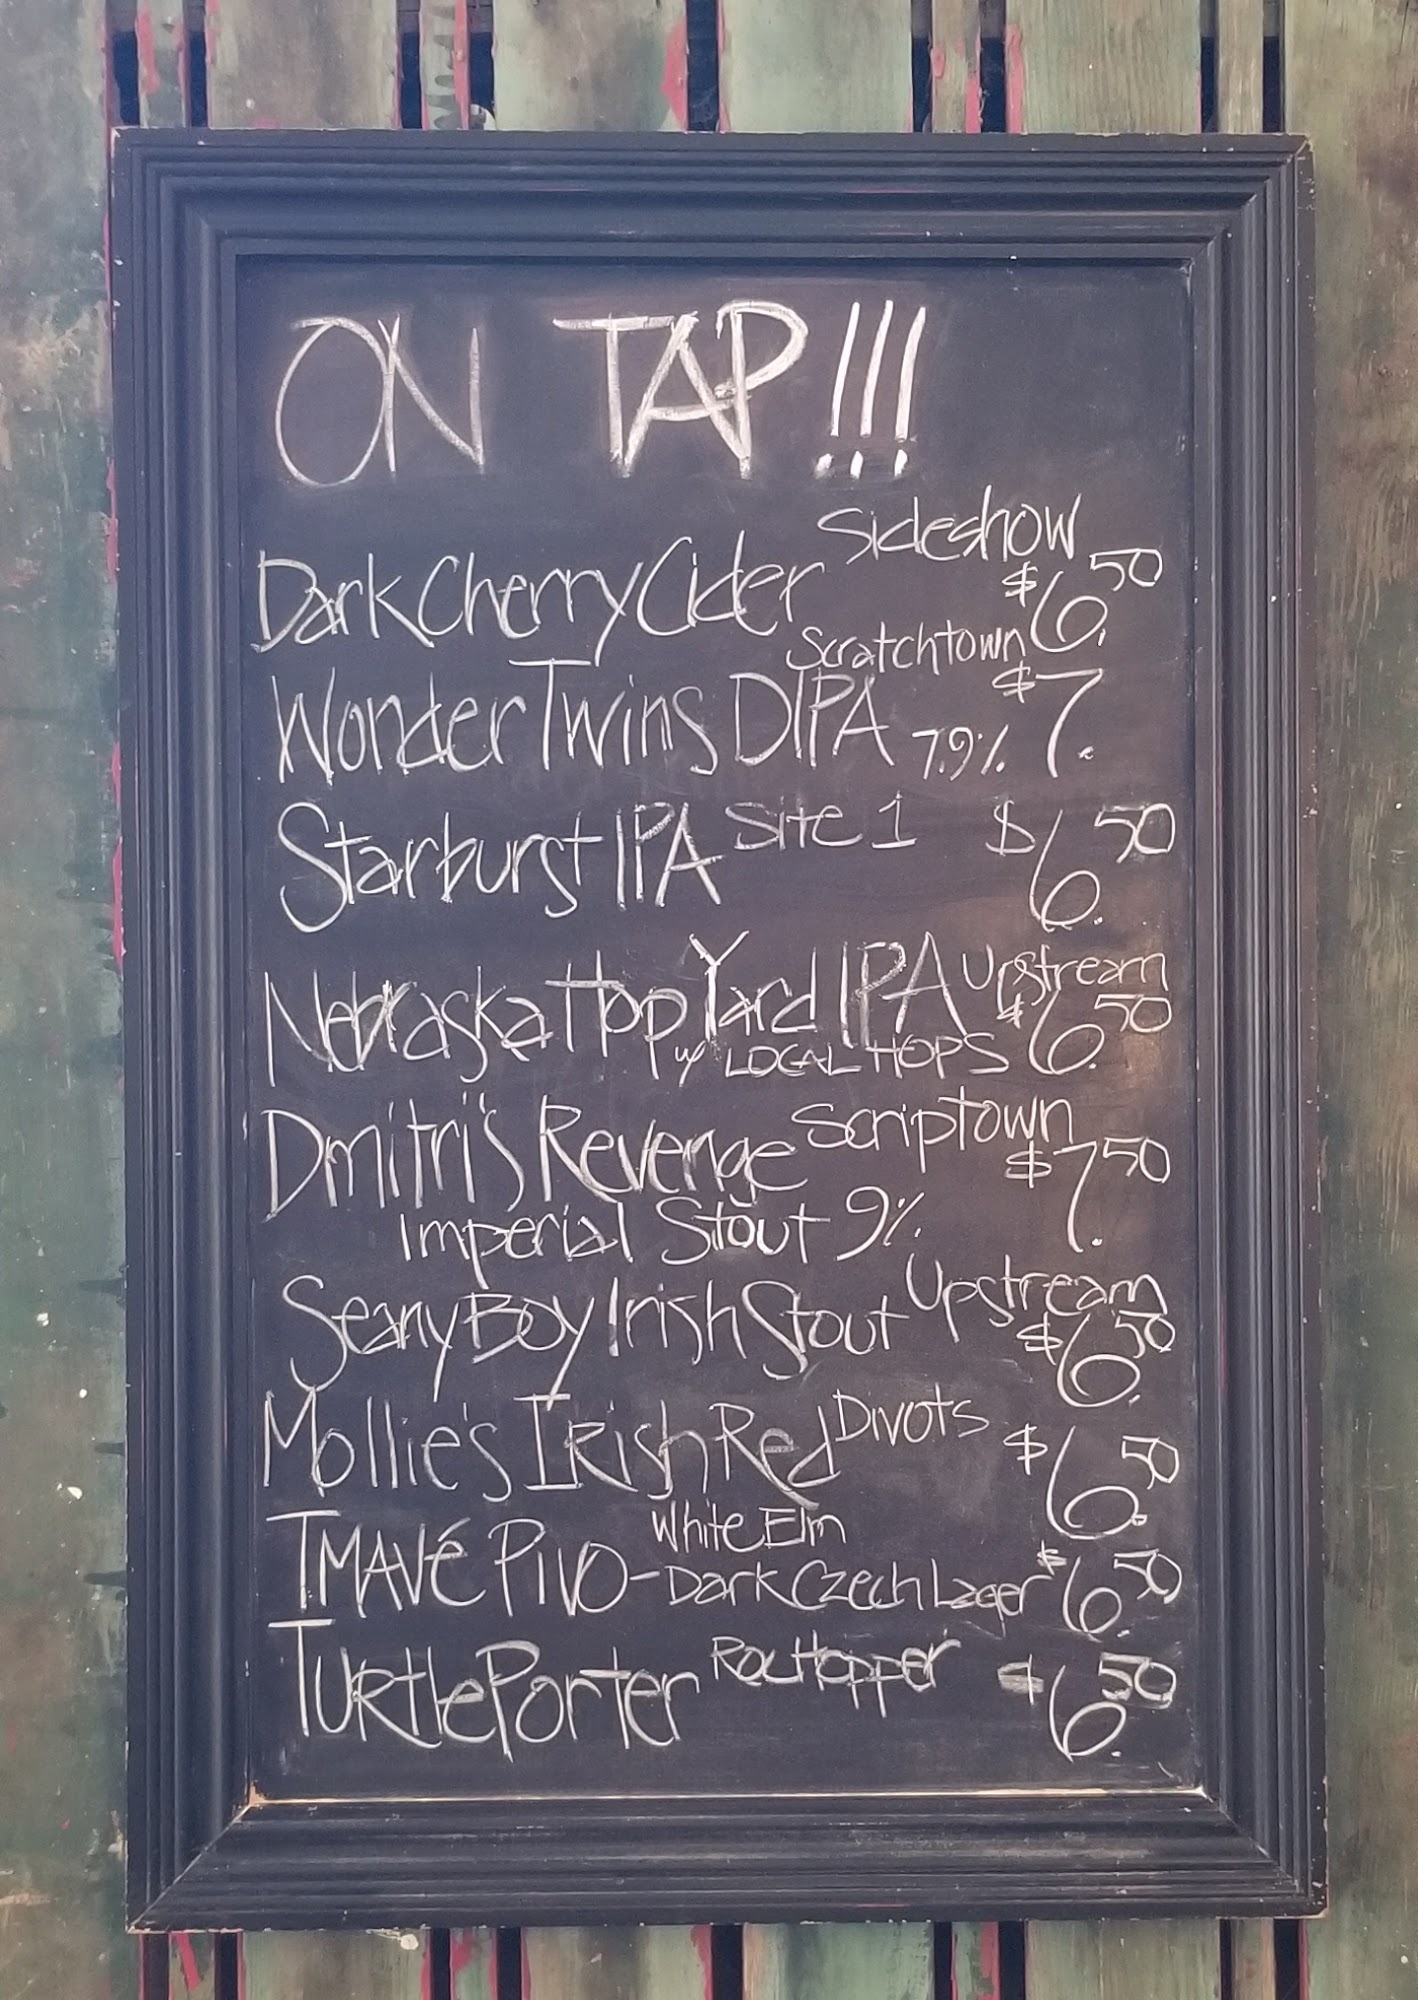 ON TAP!!!
Dark Cherry Cider Sideshow $6.50
Wonder Twins DIPA Scratchtown 7.9% $7.
Starburst IPA Site 1 $6.50
Nebraska Hop Yard IPA Upstream $6.50
w/ LOCAL HOPS
Dmitri's Revenge Scriptown $7.50
Imperial Stout 9%
Seany Boy Irish Stout Upstream $6.50
Mollie's Irish Red Divots $6.50
White Elm
TMAVÉ PIVO - Dark Czech Lager $6.50
Turtle Porter RocHopper $6.50